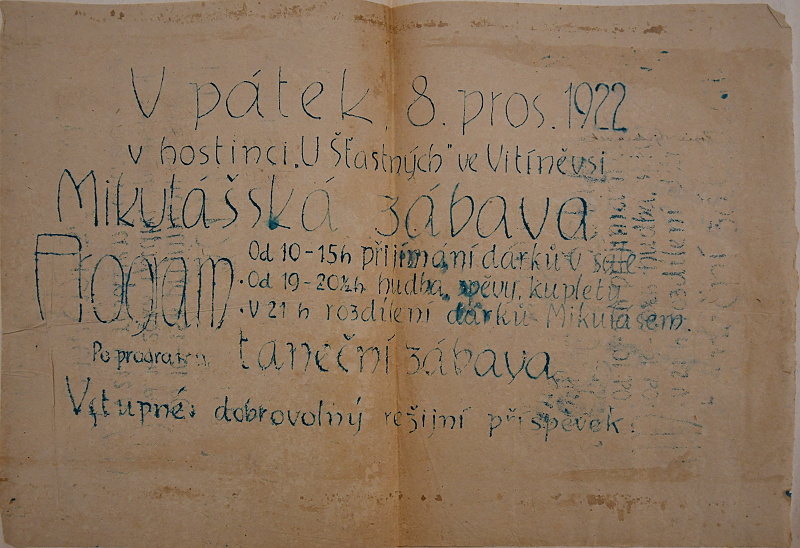 V pátek 8. pros. 1922
v hostinci „U Šťastných" ve Vitíněvsi
Mikulášská zábava
Program
· Od 10-15h přijímání dárků v sále
· Od 19-20½h hudba, zpěvy, kuplety
· V 21 h rozdílení dárků Mikulášem.
Po programu taneční zábava
Vstupné: dobrovolný režijní příspěvek.